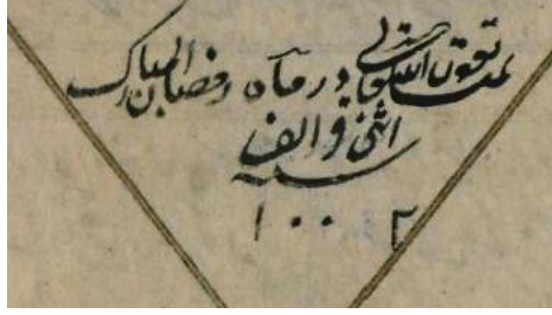 تمت بعون الله تعالی در ماه رمضان المبارک
اثنی و الف
سنه
۱۰۰۲